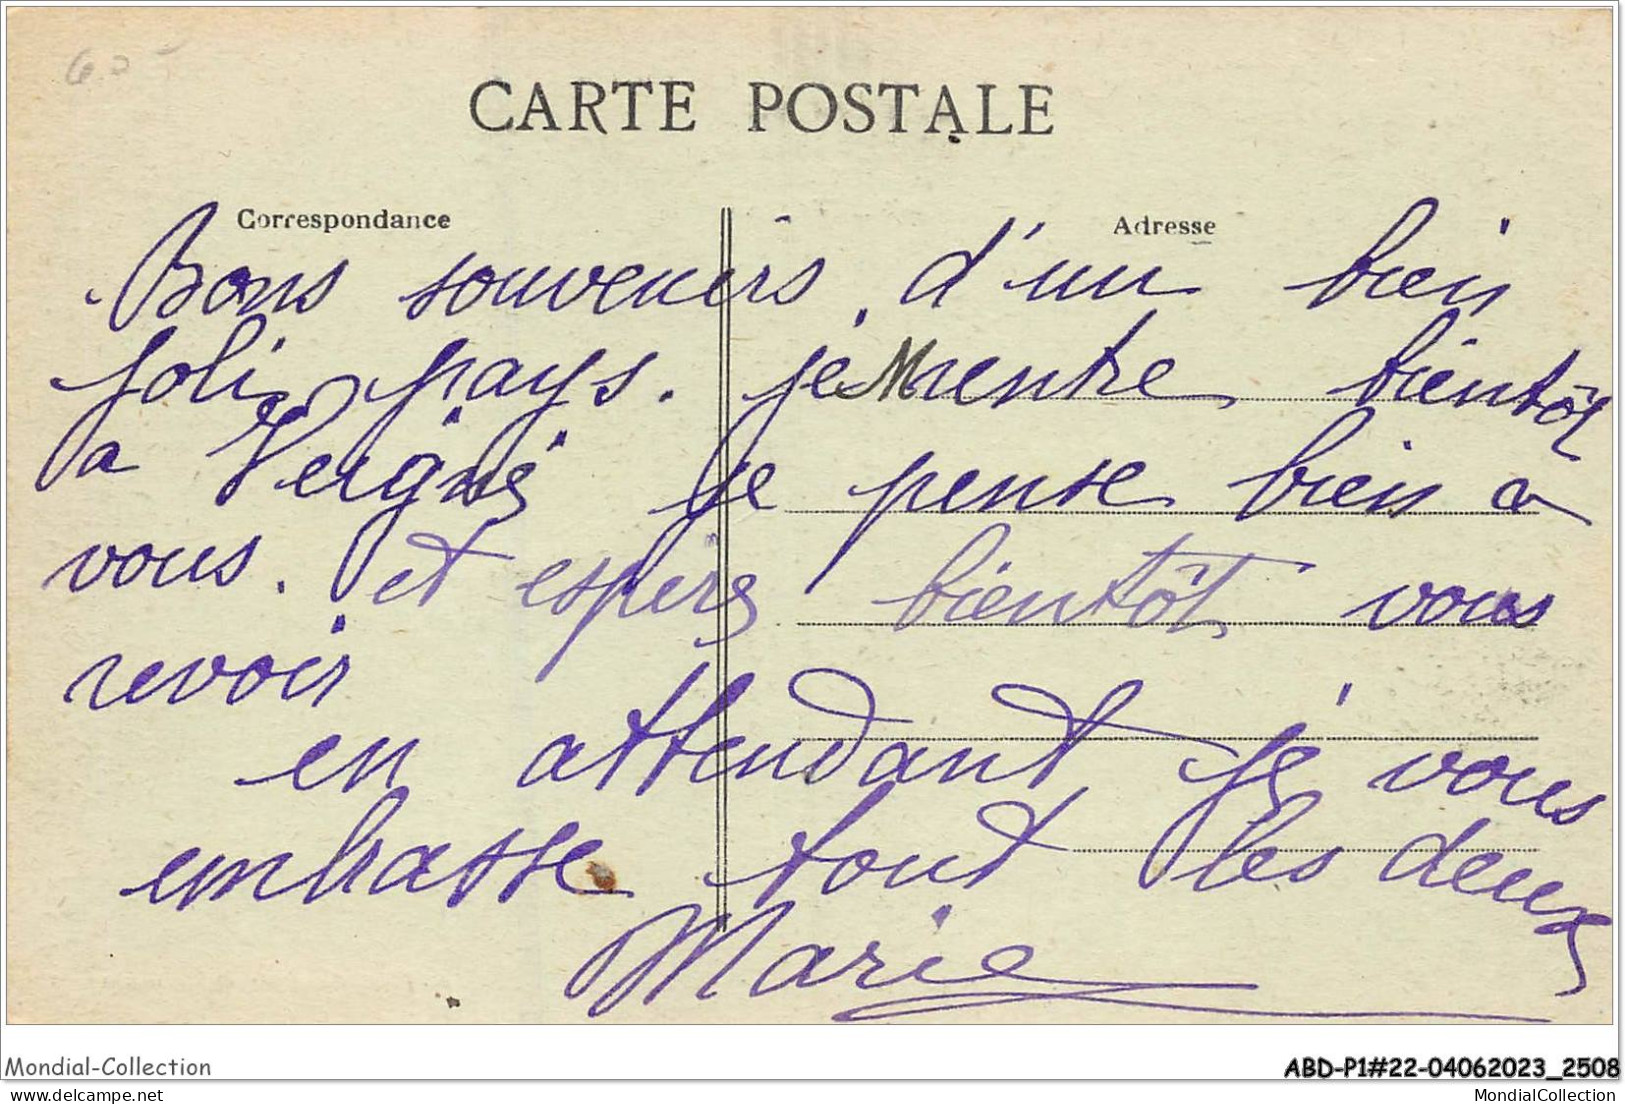 60
CARTE POSTALE
Correspondance
Adresse
Bons souvenirs. d'un bien
joli pays. je rentre bientôt
a je pense bien a
vous. et espere bientôt vous
revoir
en attendant je vous
embrasse tout les deux
Marie
Mondial-Collection
ABD-P1#22-04062023_2508
delcampe.net
MondialCollection